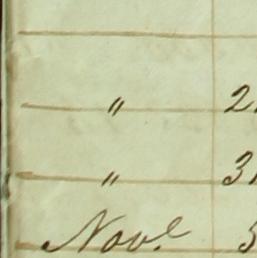 " 2
" 3
Nov.e 5